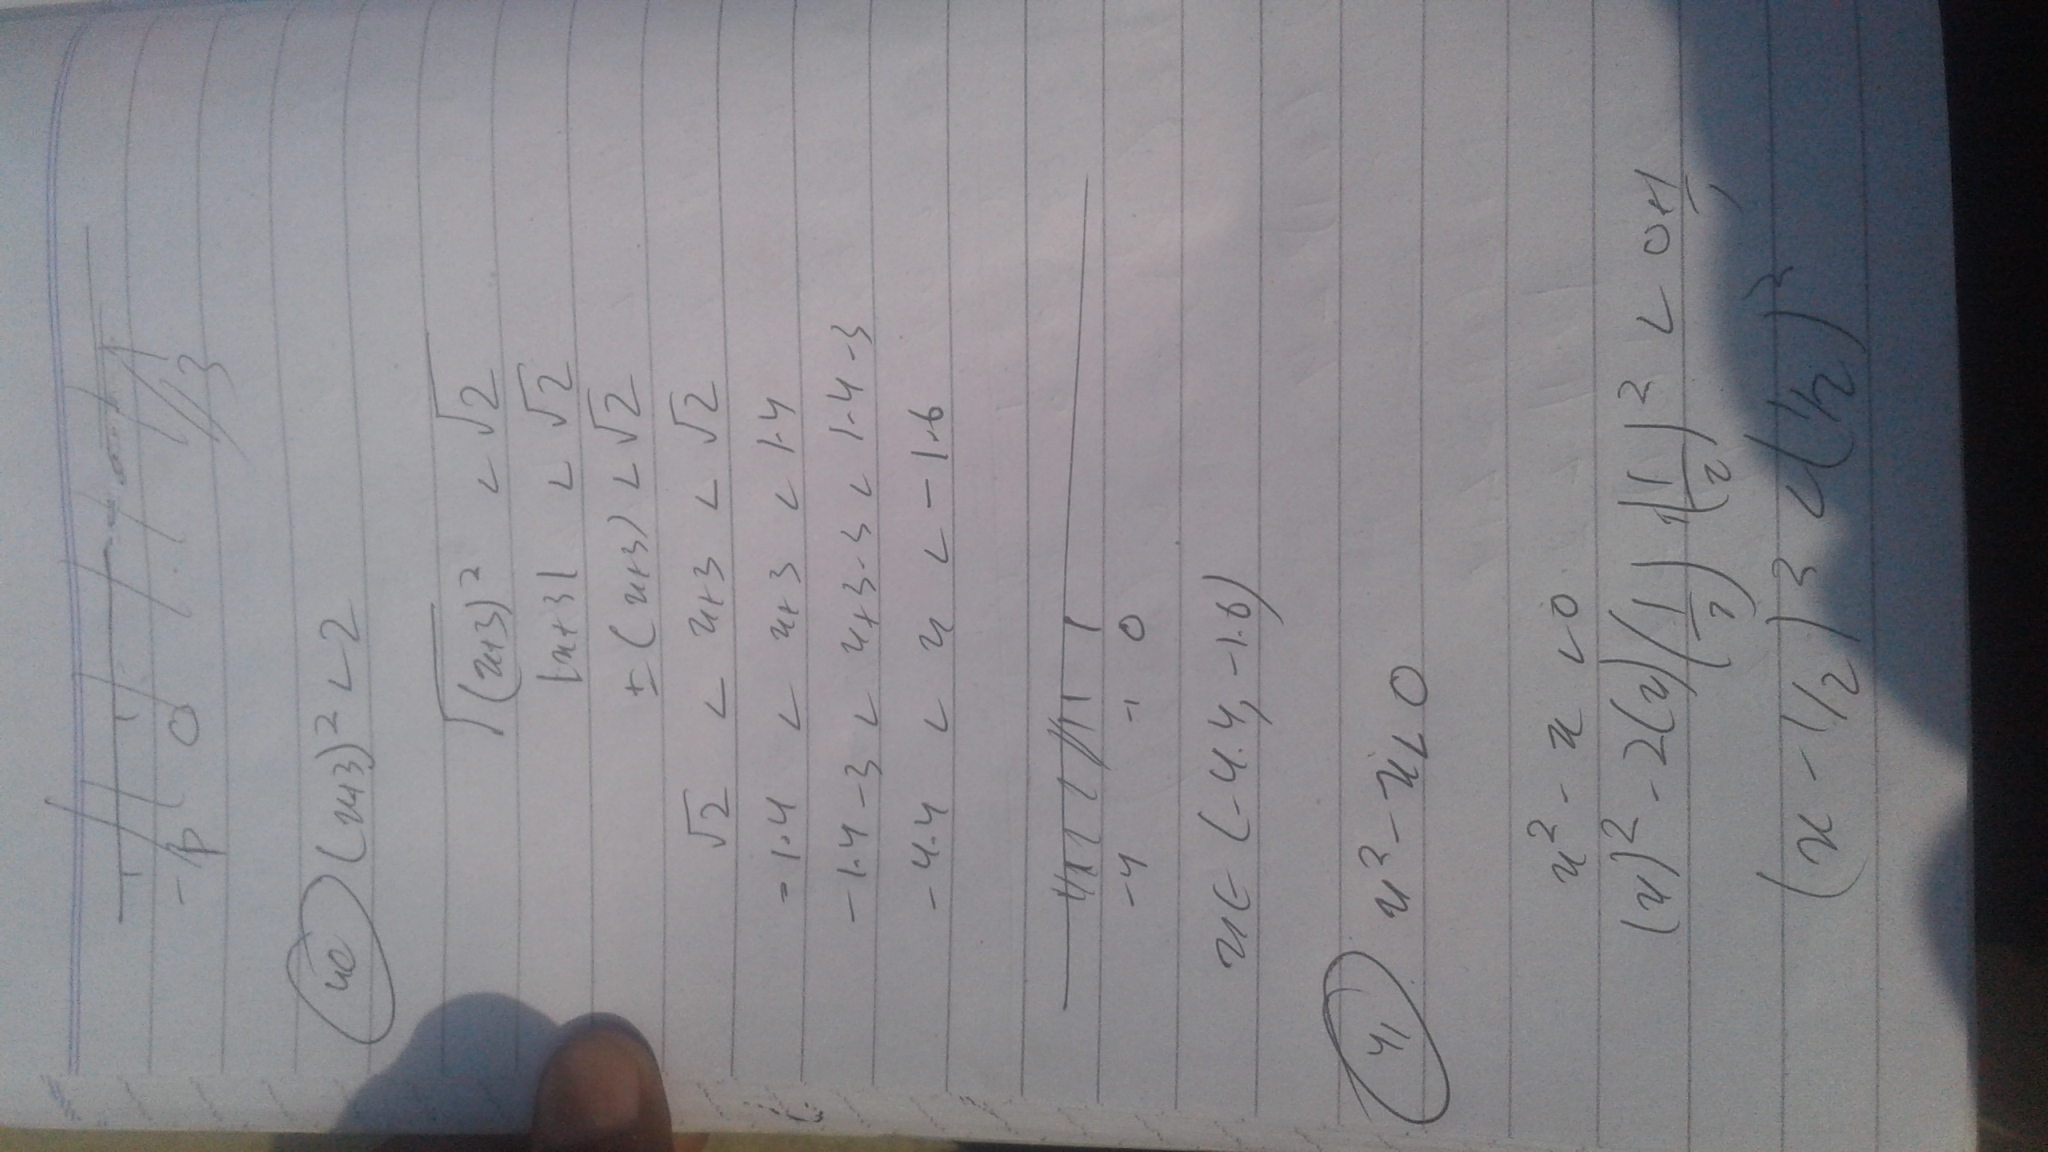 -p 0 3
40 (x+3)² < 2
√(x+3)² < √2
|x+3| < √2
±(x+3) < √2
√2 < x+3 < √2
-1.4 < x+3 < 1.4
-1.4-3 < x+3-3 < 1.4-3
-4.4 < x < -1.6
-4 -1 0
x∈ (-4.4, -1.6)
41 x²-x<0
x² - x <0
(x)² -2(x)(1/2) + (1/2)² <
(x-1/2)² <(1/2)²